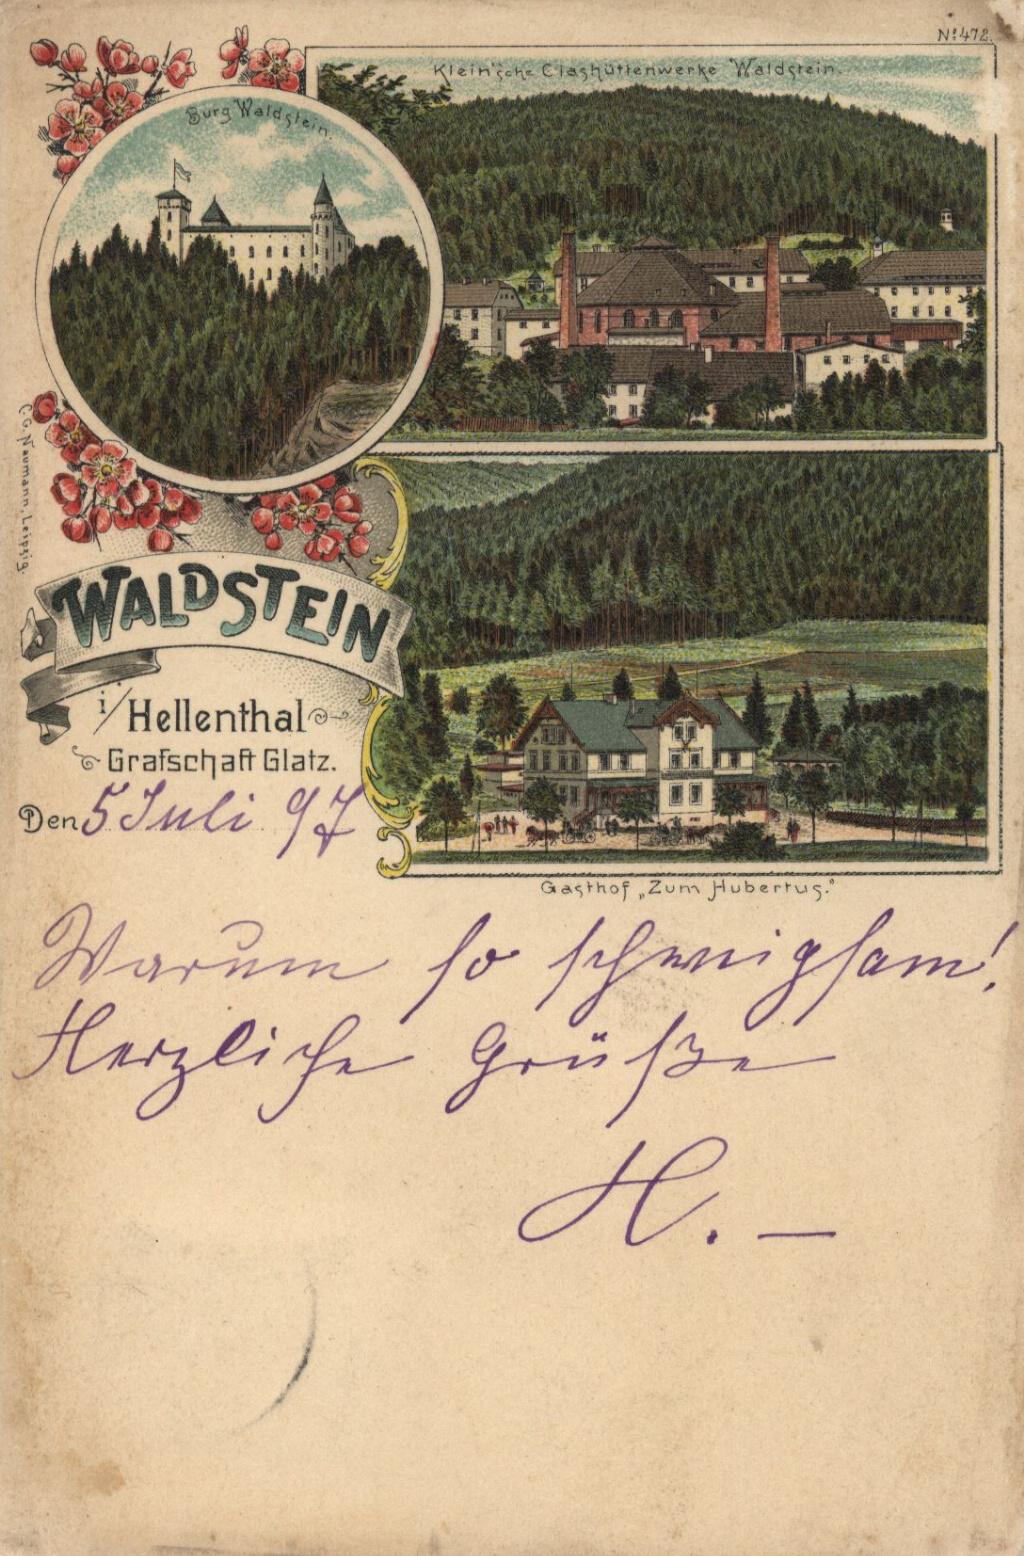 No. 472.
Klein'sche Glashüttenwerke Waldstein.
Burg Waldstein.
C. G. Naumann, Leipzig.
WALDSTEIN
i/ Hellenthal
Grafschaft Glatz.
Den 5 Juli 97
Gasthof „Zum Hubertus."
Warum so schweigsam!
Herzliche Grüße
H. —